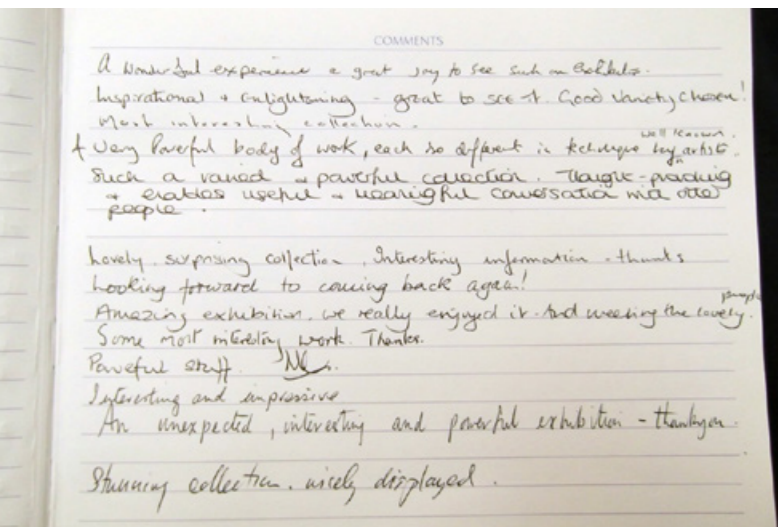 COMMENTS
A wonderful experience a great joy to see such an Exhibition.
Inspirational + Enlightening - great to see it. Good variety chosen!
Most interesting collection.
A very powerful body of work, each so different in technique by well known artist.
Such a varied + powerful collection. Thought-provoking
+ enables useful + meaningful conversation with other
people.
Lovely surprising collection. Interesting information - thanks
Looking forward to coming back again!
Amazing exhibition. we really enjoyed it. And meeting the lovely people.
Some most interesting work. Thanks.
Powerful stuff.
Interesting and impressive
An unexpected, interesting and powerful exhibition - thankyou.
Stunning collection. nicely displayed.